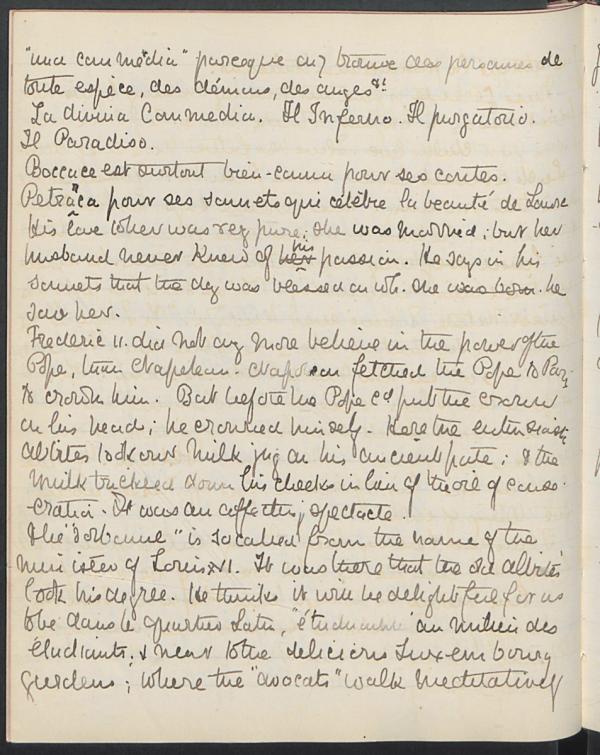 "una commèdia" parceque on y trouve des personnes de
toute espèce, des démons, des anges &c
La divina Commedia. Il Inferno. Il purgatorio.
Il Paradiso.
Boccace est surtout bien-connu pour ses contes.
Petrarca pour ses sonnets qui célèbre la beauté de Laura
His love to her was very pure; she was married; but her
husband never knew of her his passion. He says in his
sonnets that the day was blessed on wh. she was born. he
saw her.
Frederic II. did not any more believe in the power of the
Pope, than Napoleon. Napoleon fetched the Pope to Paris
to crown him. But before the Pope cd put the crown
on his head; he crowned himself. Here the enthusiastic
abbé's milk jug on his ancient pate; & the
milk trickled down his cheeks in lieu of the oil of conse-
cration. It was an affecting spectacle.
The "Sorbonne" is so called from the name of the
minister of Louis XI. It was there that the old abbé
took his degree. He thinks it will be delightful for us
to be dans le quartier Latin, au milieu des
étudiants; & near to the delicious Luxembourg
gardens; where the "avocats" walk meditatively